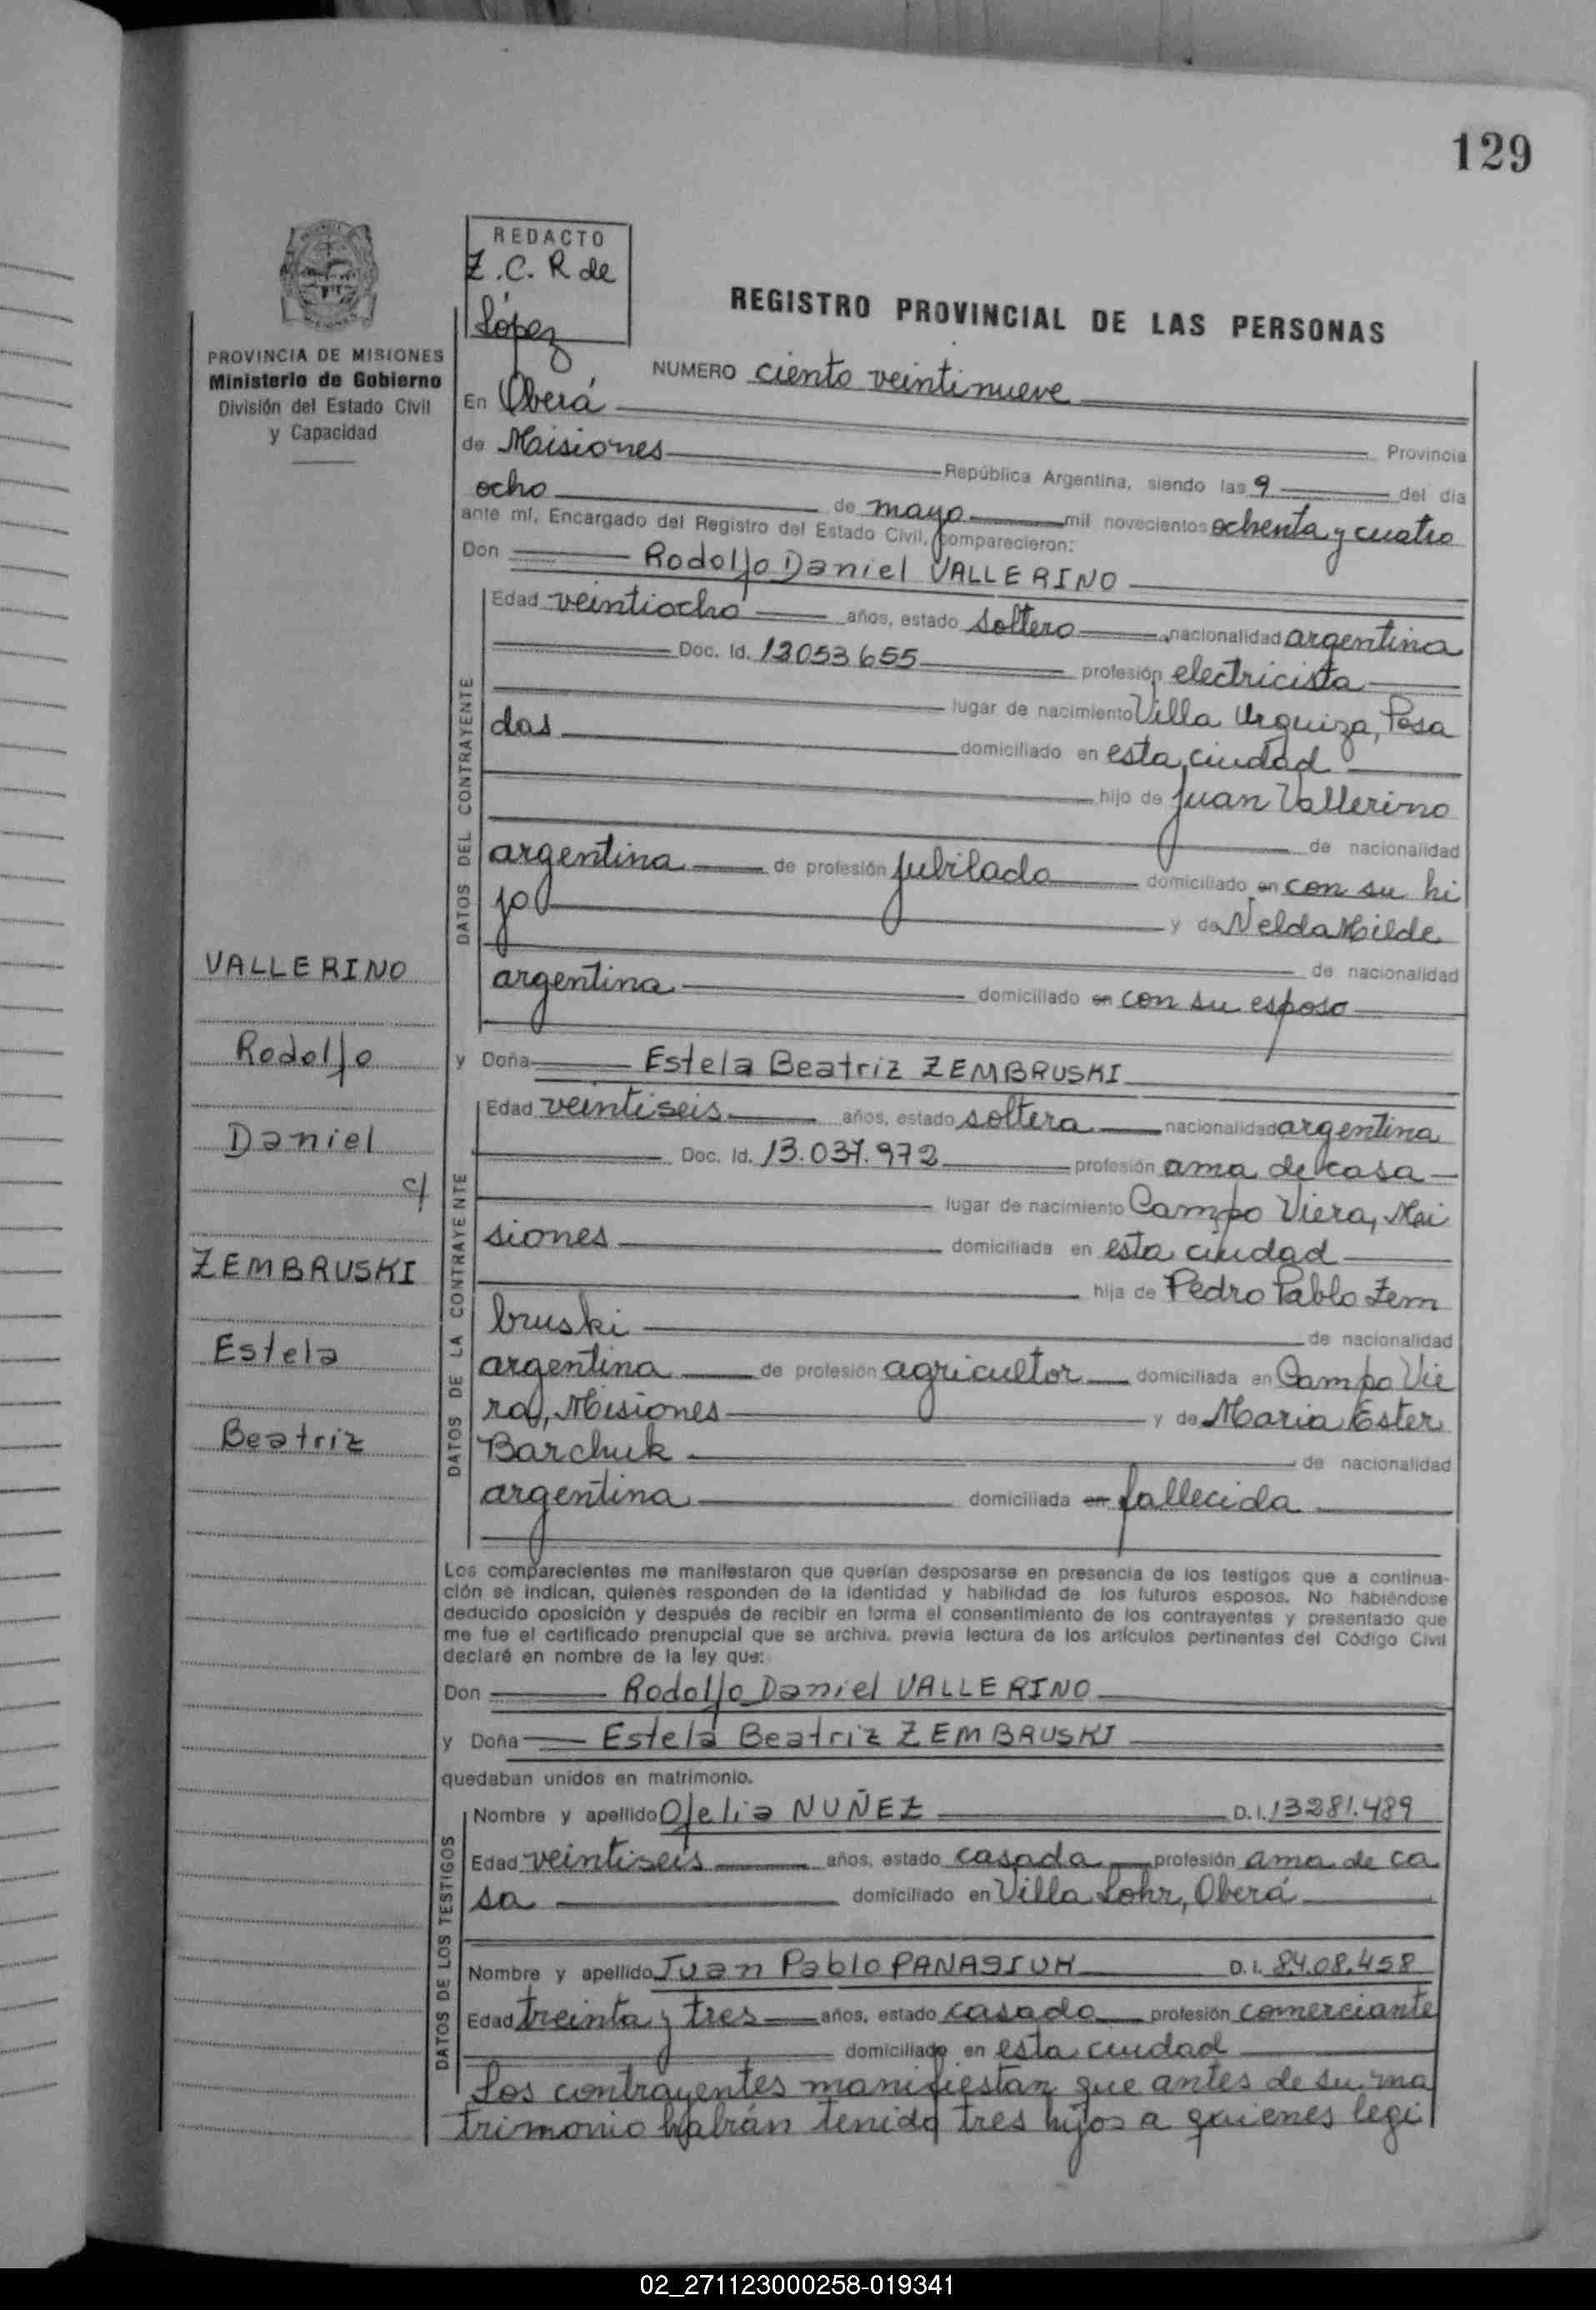 129
REDACTO
Z.C.R de
López
REGISTRO PROVINCIAL DE LAS PERSONAS
PROVINCIA DE MISIONES
Ministerio de Gobierno
División del Estado Civil
y Capacidad
NUMERO ciento veintinueve
En Oberá Provincia
de Misiones República Argentina, siendo las 9 del día
ocho de mayo mil novecientos ochenta y cuatro
ante mí, Encargado del Registro del Estado Civil, comparecieron:
Don Rodolfo Daniel VALLERINO
DATOS DEL CONTRAYENTE
Edad veintiocho años, estado soltero nacionalidad argentina
Doc. Id. 12053655 profesión electricista
lugar de nacimiento Villa Urquiza, Posa
das domiciliado en esta ciudad
hijo de Juan Vallerino
de nacionalidad
argentina de profesión jubilado domiciliado en con su hi
jo y de Nelda Hilde
de nacionalidad
argentina domiciliado en con su esposo
y Doña Estela Beatriz ZEMBRUSKI
DATOS DE LA CONTRAYENTE
Edad veintiseis años, estado soltera nacionalidad argentina
Doc. Id. 13.037.972 profesión ama de casa
lugar de nacimiento Campo Viera, Mi
siones domiciliada en esta ciudad
hija de Pedro Pablo Zem
bruski de nacionalidad
argentina de profesión agricultor domiciliada en Campo Vie
ra, Misiones y de Maria Ester
Barchuk de nacionalidad
argentina domiciliada en fallecida
VALLERINO
Rodolfo
Daniel
c/
ZEMBRUSKI
Estela
Beatriz
Los comparecientes me manifestaron que querían desposarse en presencia de los testigos que a continua-
ción se indican, quienes responden de la identidad y habilidad de los futuros esposos. No habiéndose
deducido oposición y después de recibir en forma el consentimiento de los contrayentes y presentado que
me fue el certificado prenupcial que se archiva, previa lectura de los artículos pertinentes del Código Civil
declaré en nombre de la ley que:
Don Rodolfo Daniel VALLERINO
y Doña Estela Beatriz ZEMBRUSKI
quedaban unidos en matrimonio.
DATOS DE LOS TESTIGOS
Nombre y apellido Ofelia NUÑEZ D.I. 13281.489
Edad veintiseis años, estado casada profesión ama de ca
sa domiciliado en Villa Lohr, Oberá
Nombre y apellido Juan Pablo PANASIUK D.I. 8408.458
Edad treinta y tres años, estado casado profesión comerciante
domiciliado en esta ciudad
Los contrayentes manifiestan que antes de su ma
trimonio habrán tenido tres hijos a quienes legi
02_271123000258-019341